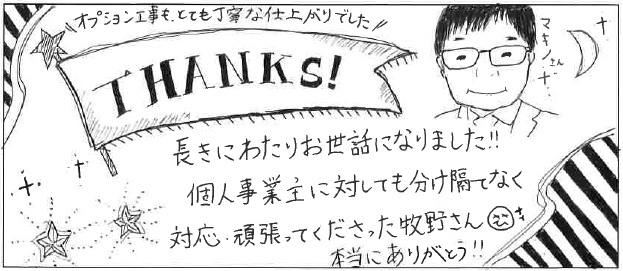 \\オプション工事も、とても丁寧な仕上がりでした//
THANKS!
マキノさん
長きにわたりお世話になりました!!
個人事業主に対しても分け隔てなく
対応、頑張ってくださった牧野さん
本当にありがとう!!